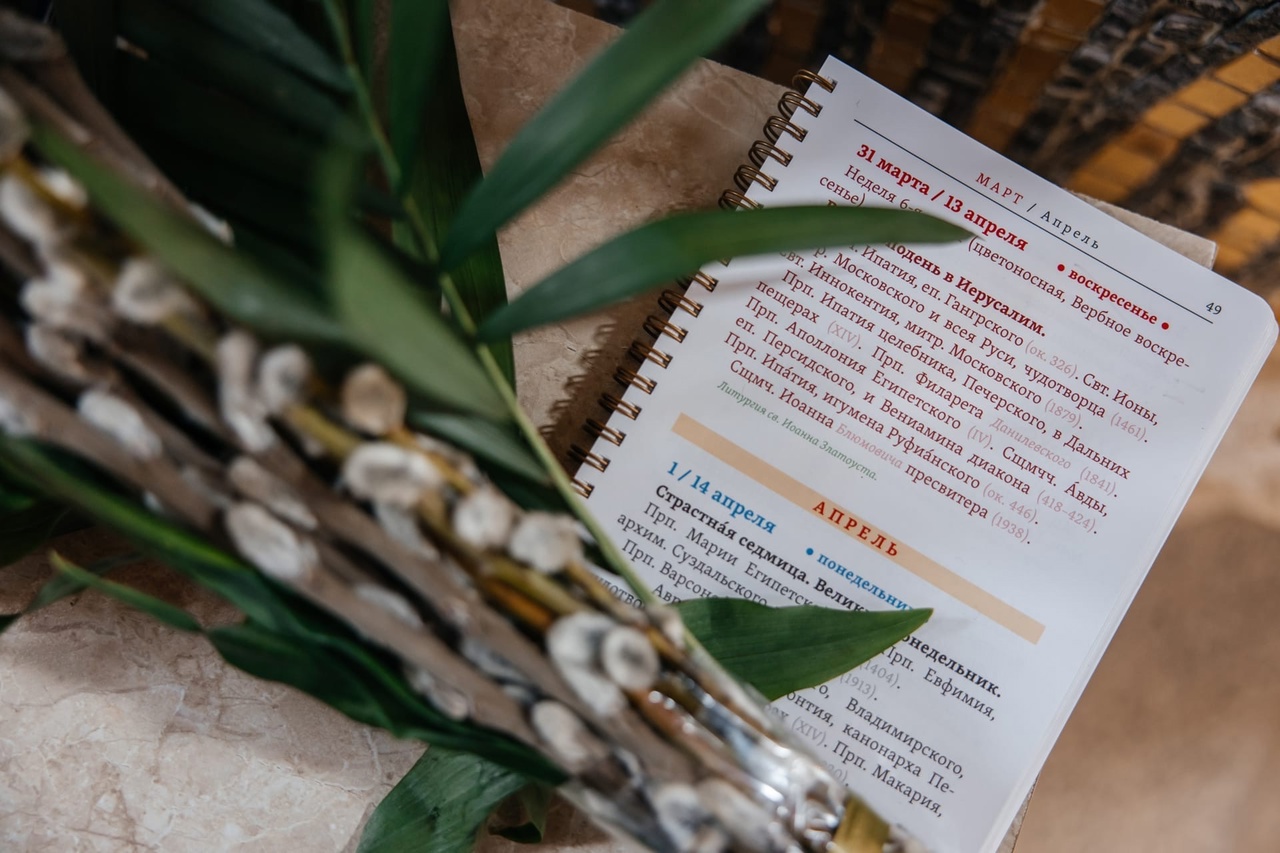 МАРТ / Апрель
49
31 марта / 13 апреля • воскресенье •
Неделя (цветоносная, Вербное воскре-
сенье)
в Иерусалим.
Ипатия, еп. Гангрского (ок. 326). Свт. Ионы,
Московского и всея Руси, чудотворца (1461).
Иннокентия, митр. Московского (1879).
Прп. Ипатия целебника, Печерского, в Дальних
пещерах (XIV). Прп. Филарета Данилевского (1841).
Прп. Аполлония Египетского (IV). Сщмчч. Авды,
еп. Персидского, и Вениамина диакона (418–424).
Прп. Ипа́тия, игумена Руфиа́нского (ок. 446).
Сщмч. Иоанна Блюмовича пресвитера (1938).
Литургия св. Иоанна Златоуста.
АПРЕЛЬ
1 / 14 апреля • понедельник
Страстна́я седмица. Велик
Прп. Марии Египетс Прп. Евфимия,
архим. Суздальского (1404).
Прп. Варсоно (1913).
Владимирского,
канонарха Пе-
(XIV). Прп. Макария,